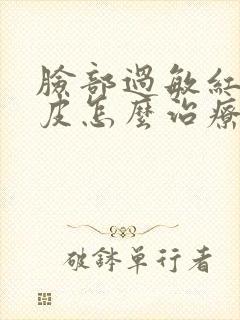 臉部過敏紅
皮怎麼治療
破鉢單行者